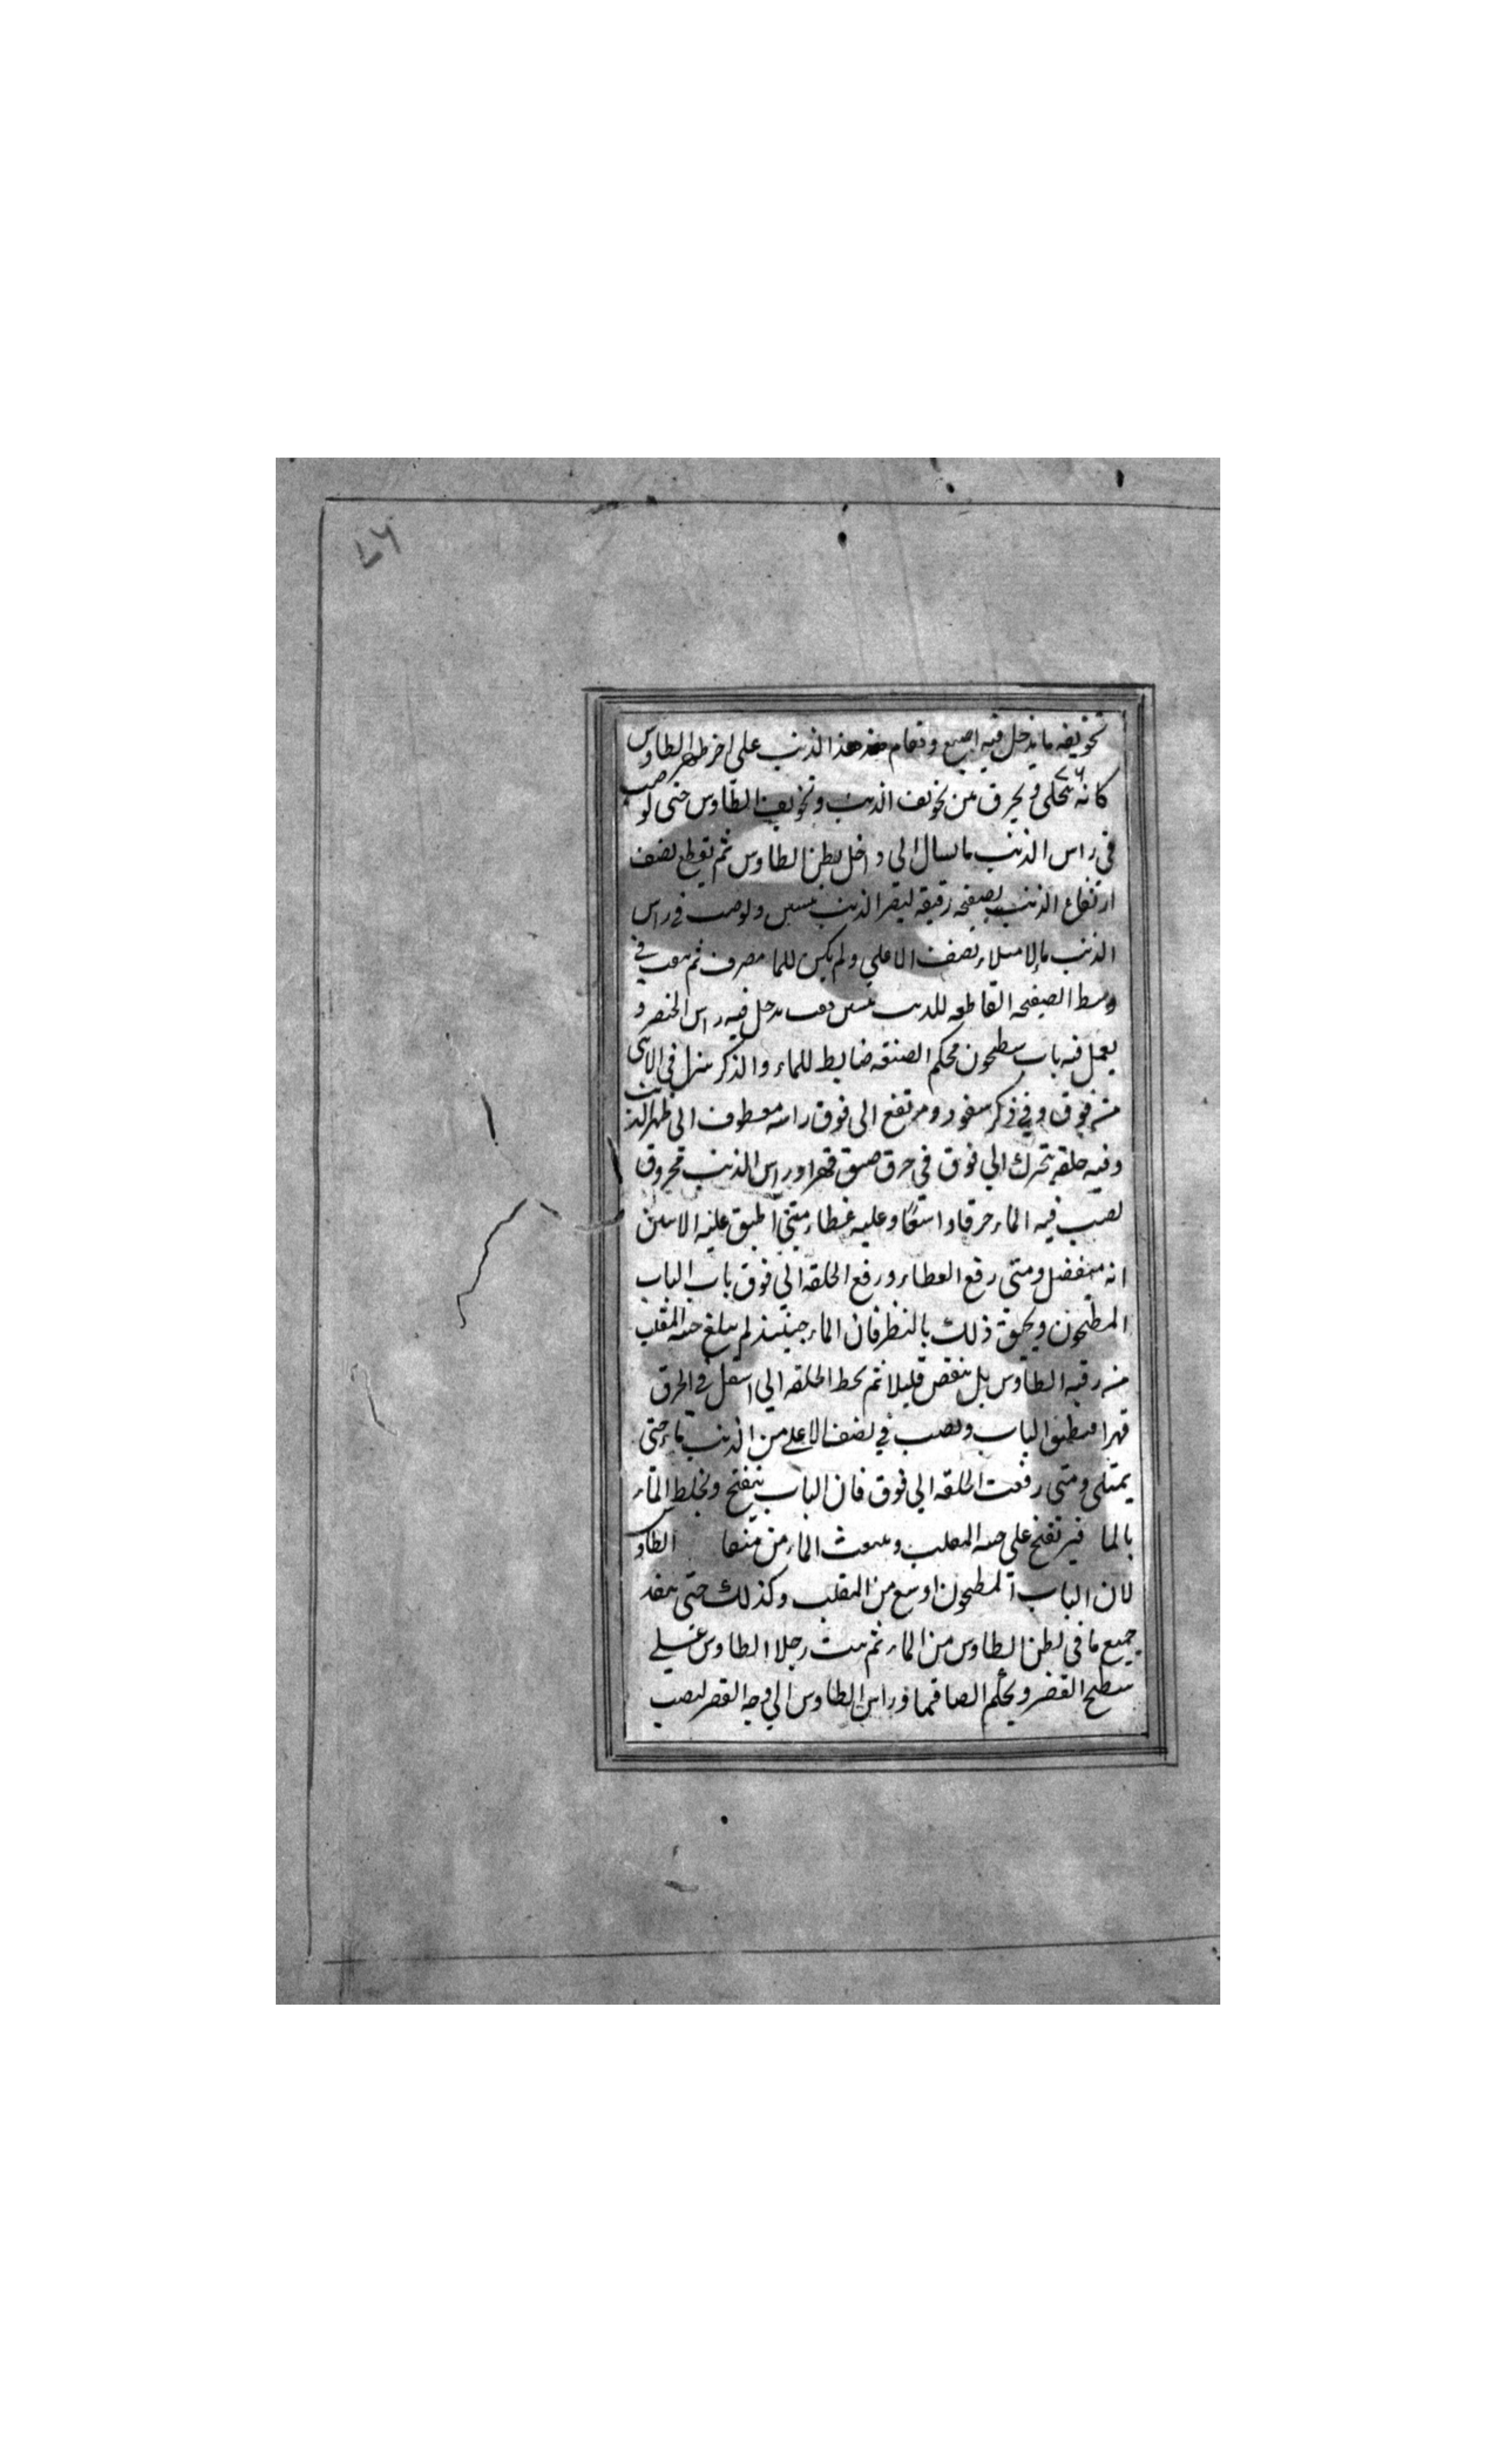 تجويفه ما يدخل فيه اصبع وتقام هذا الذنب على اخر ظهر الطاوس
كانه يتحلى ويخرق بين تجويف الذنب وتجويف الطاوس حتى لو صب
في راس الذنب ما لسال الى داخل بطن الطاوس ثم يقطع نصف
ارتفاع الذنب بصفيحه رقيقه ليقر الذنب ولو صب في راس
الذنب ما لامتلاء نصف الاعلى ولم يكن للما مصرف ثم يثقب في
وسط الصفيحه القاطعه للذنب ثقب يدخل فيه راس الخنصر و
يعمل فيه باب مطحون محكم الصنعه ضابط للماء والذكر ينزل في الانثى
من فوق وفي ذكر سفود ومرتفع الى فوق راسه معطوف الى ظهر الذنب
وفيه حلقه يتحرك الى فوق في خرق ضيق قهرا وراس الذنب مخروق
لصب فيه الماء خرقا واسعا وعليه غطاء متى اطبق عليه لا يتبين
انه منفصل ومتى رفع الغطاء ورفع الحلقه الى فوق باب الباب
المطحون ويحقق ذلك بالنظر فان الماء حينئذ لم يبلغ المقلب
من رقبه الطاوس بل ينقص قليلا ثم يحط الحلقه الى اسفل في الخرق
قهرا فينطبق الباب ويصب في نصف الاعلى من الذنب ماء حتى
يمتلى ومتى رفعت الحلقه الى فوق فان الباب ينفتح ويختلط الماء
بالما فيرتفع على المقلب وينبعث الماء من منقا الطاو
لان الباب المطحون اوسع من المقلب وكذلك حتى ينفد
جميع ما في بطن الطاوس من الماء ثم يثبت رجلا الطاوس على
سطح القصر ويحكم الصاقهما وراس الطاوس الى وجه القصر ليصب